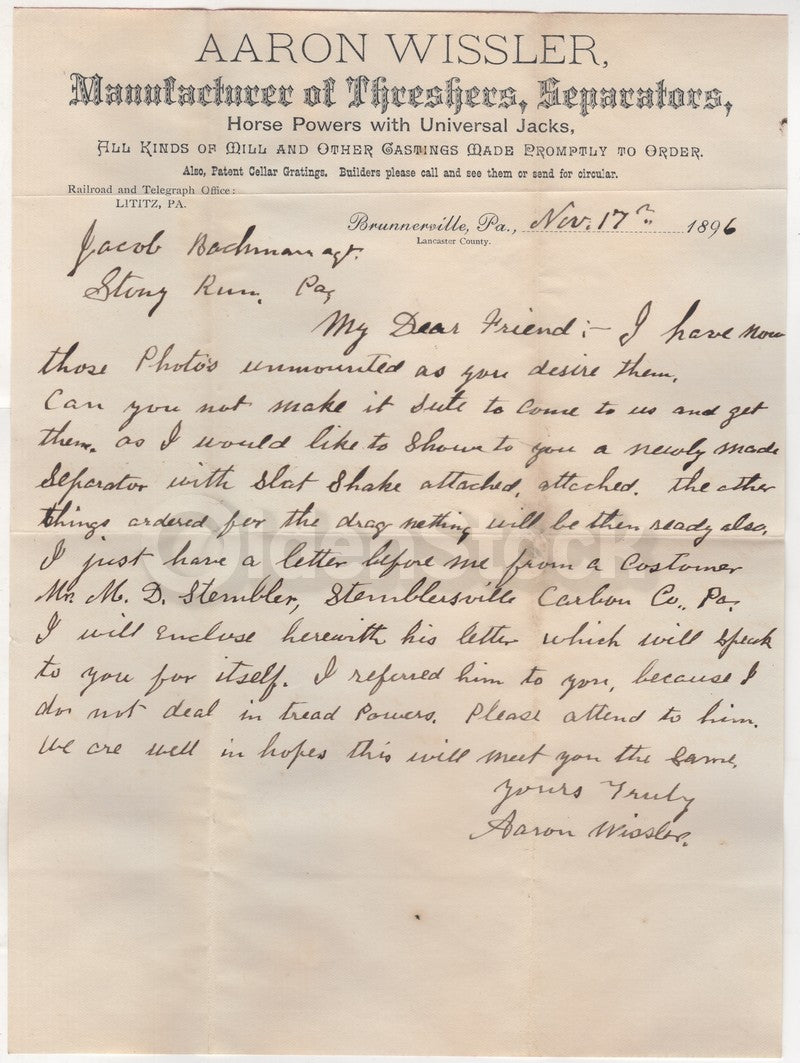 AARON WISSLER,
Manufacturer of Threshers, Separators,
Horse Powers with Universal Jacks,
ALL KINDS OF MILL AND OTHER CASTINGS MADE PROMPTLY TO ORDER.
Also, Patent Cellar Gratings. Builders please call and see them or send for circular.
Railroad and Telegraph Office:
LITITZ, PA.
Brunnerville, Pa., Nov. 17th 1896
Lancaster County.
Jacob Bachman agt.
Stony Run, Pa,
My Dear Friend:- I have now
those Photo's unmounted as you desire them,
Can you not make it sute to come to us and get
them, as I would like to show to you a newly made
Separator with Slat Shake attached, attached. the other
things ordered for the drag netting will be then ready also,
I just have a letter before me from a costomer
Mr. M. D. Stembler, Stemblersville Carbon Co., Pa.
I will enclose herewith his letter which will speak
to you for itself. I referred him to you, because I
do not deal in tread Powers. Please attend to him.
We are well in hopes this will meet you the same,
Yours Truly
Aaron Wissler.
OldenStock